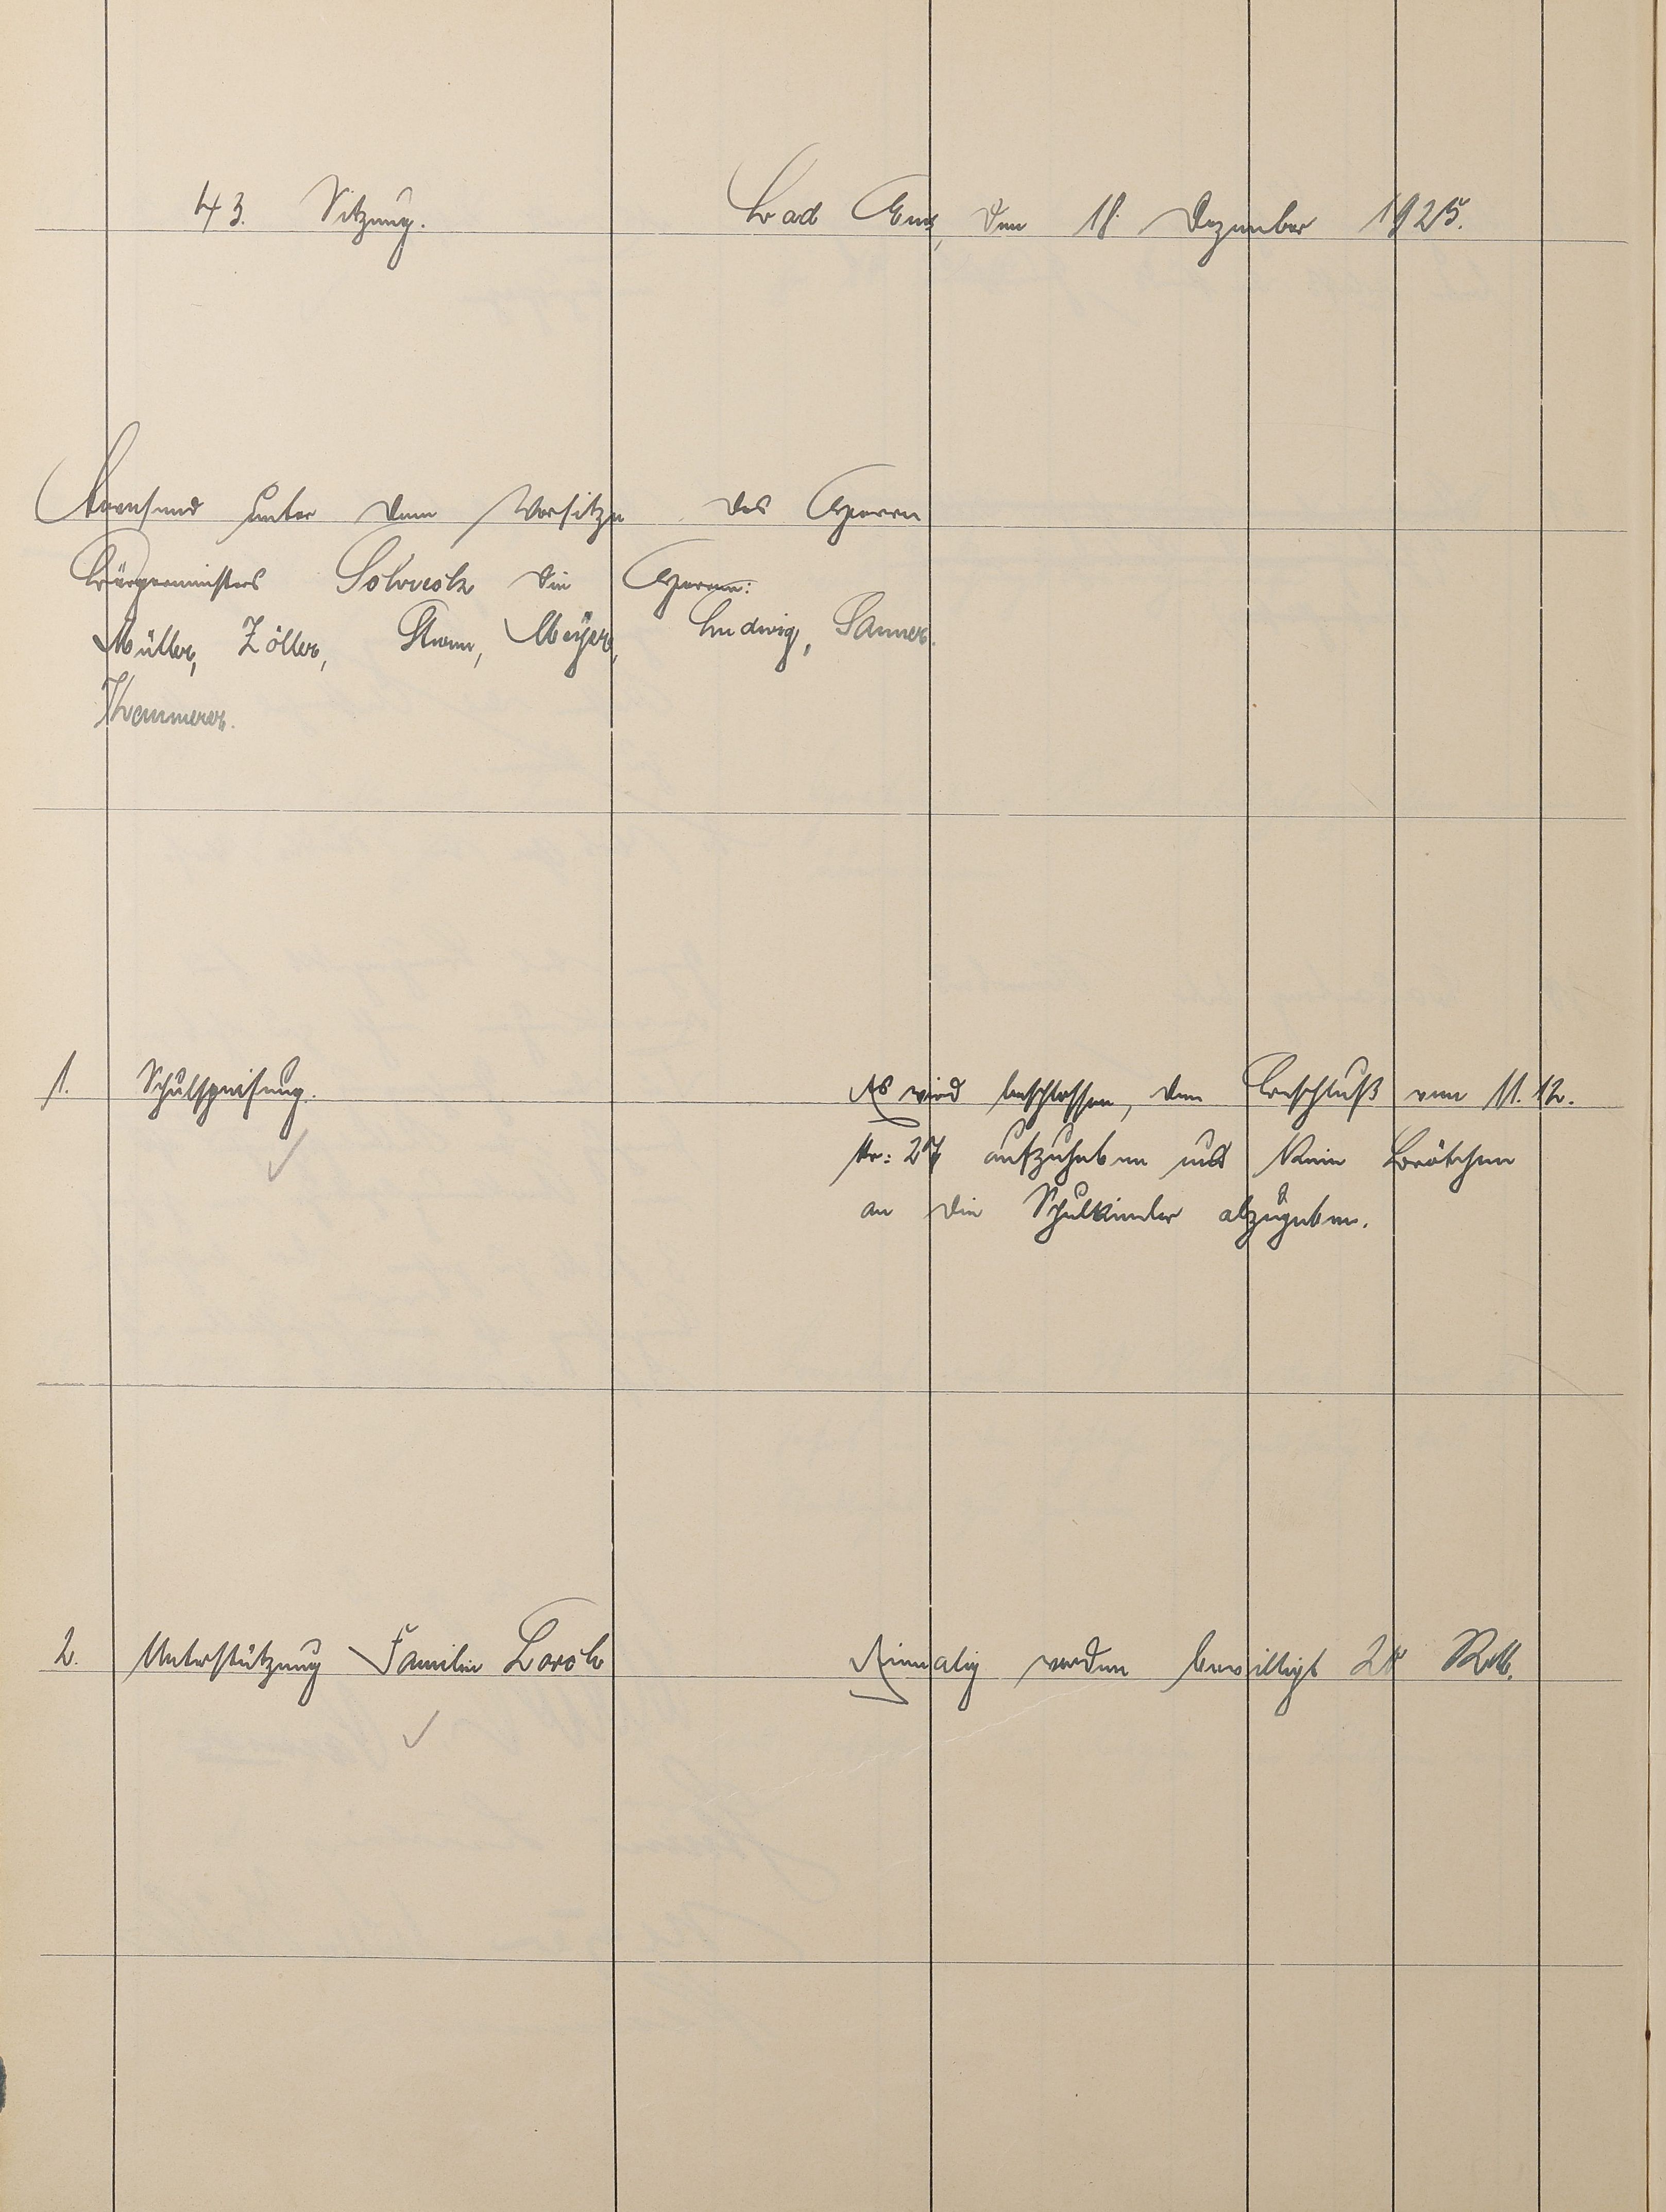 43. Sitzung. Bad Ems, den 18. Dezember 1925.
Anwesend unter dem Vorsitze des Herrn
Bürgermeisters die Herren:
Müller, Zöller, Thom, Meyer, Ludwig, Sanner.
1. Schulspeisung. Es wird beschlossen, den Beschluß vom 11.12.
Nr: 27 aufzuheben und keine Brötchen
an die Schulkinder abzugeben.
2. Unterstützung Familie Lorch Einmalig werden bewilligt RM.